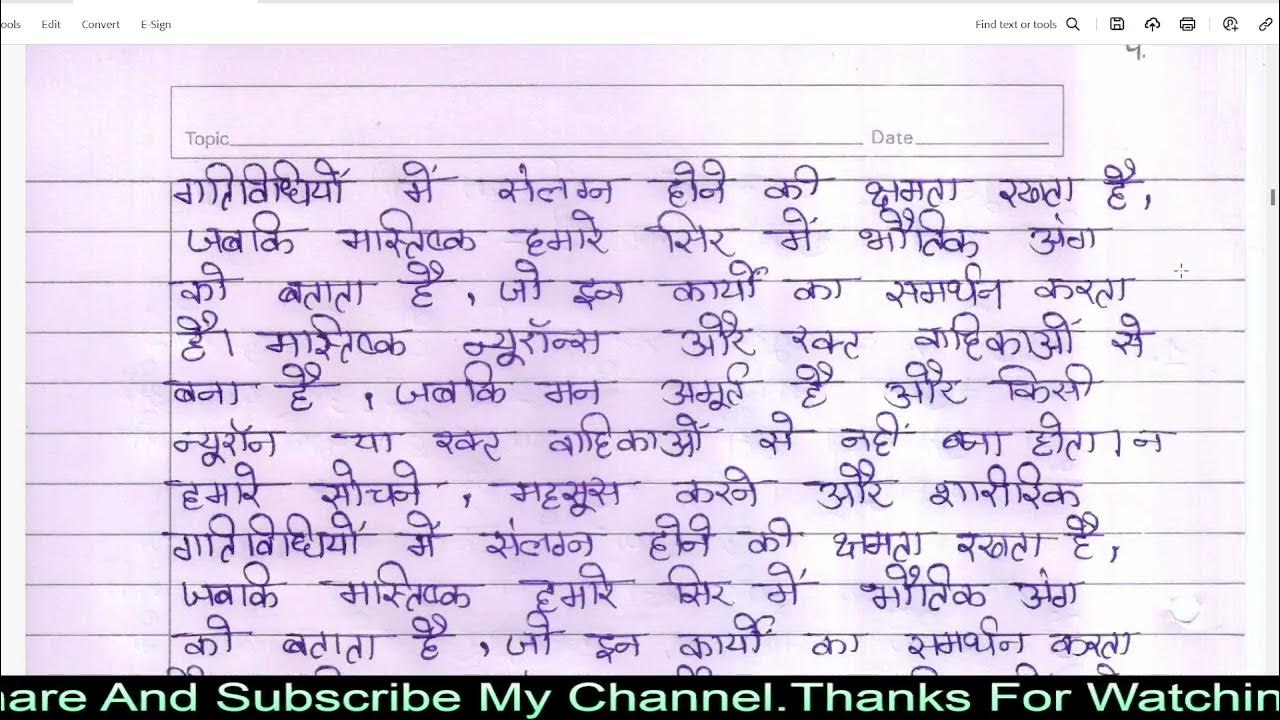 ools Edit Convert E-Sign Find text or tools
4.
Topic Date
गतिविधियों में संलग्न होने की क्षमता रखता है,
जबकि मास्तिष्क हमारे सिर में भौतिक अंग
को बताता है, जो इन कार्यों का समर्थन करता
है। मास्तिष्क न्यूरॉन्स और रक्त वाहिकाओं से
बना है, जबकि मन अमूर्त है और किसी
न्यूरॉन या रक्त वाहिकाओं से नहीं बना होता। न
हमारे सोचने, महसूस करने और शारीरिक
गतिविधियों में संलग्न होने की क्षमता रखता है,
जबकि मास्तिष्क हमारे सिर में भौतिक अंग
को बताता है, जो इन कार्यों का समर्थन करता
hare And Subscribe My Channel.Thanks For Watchin